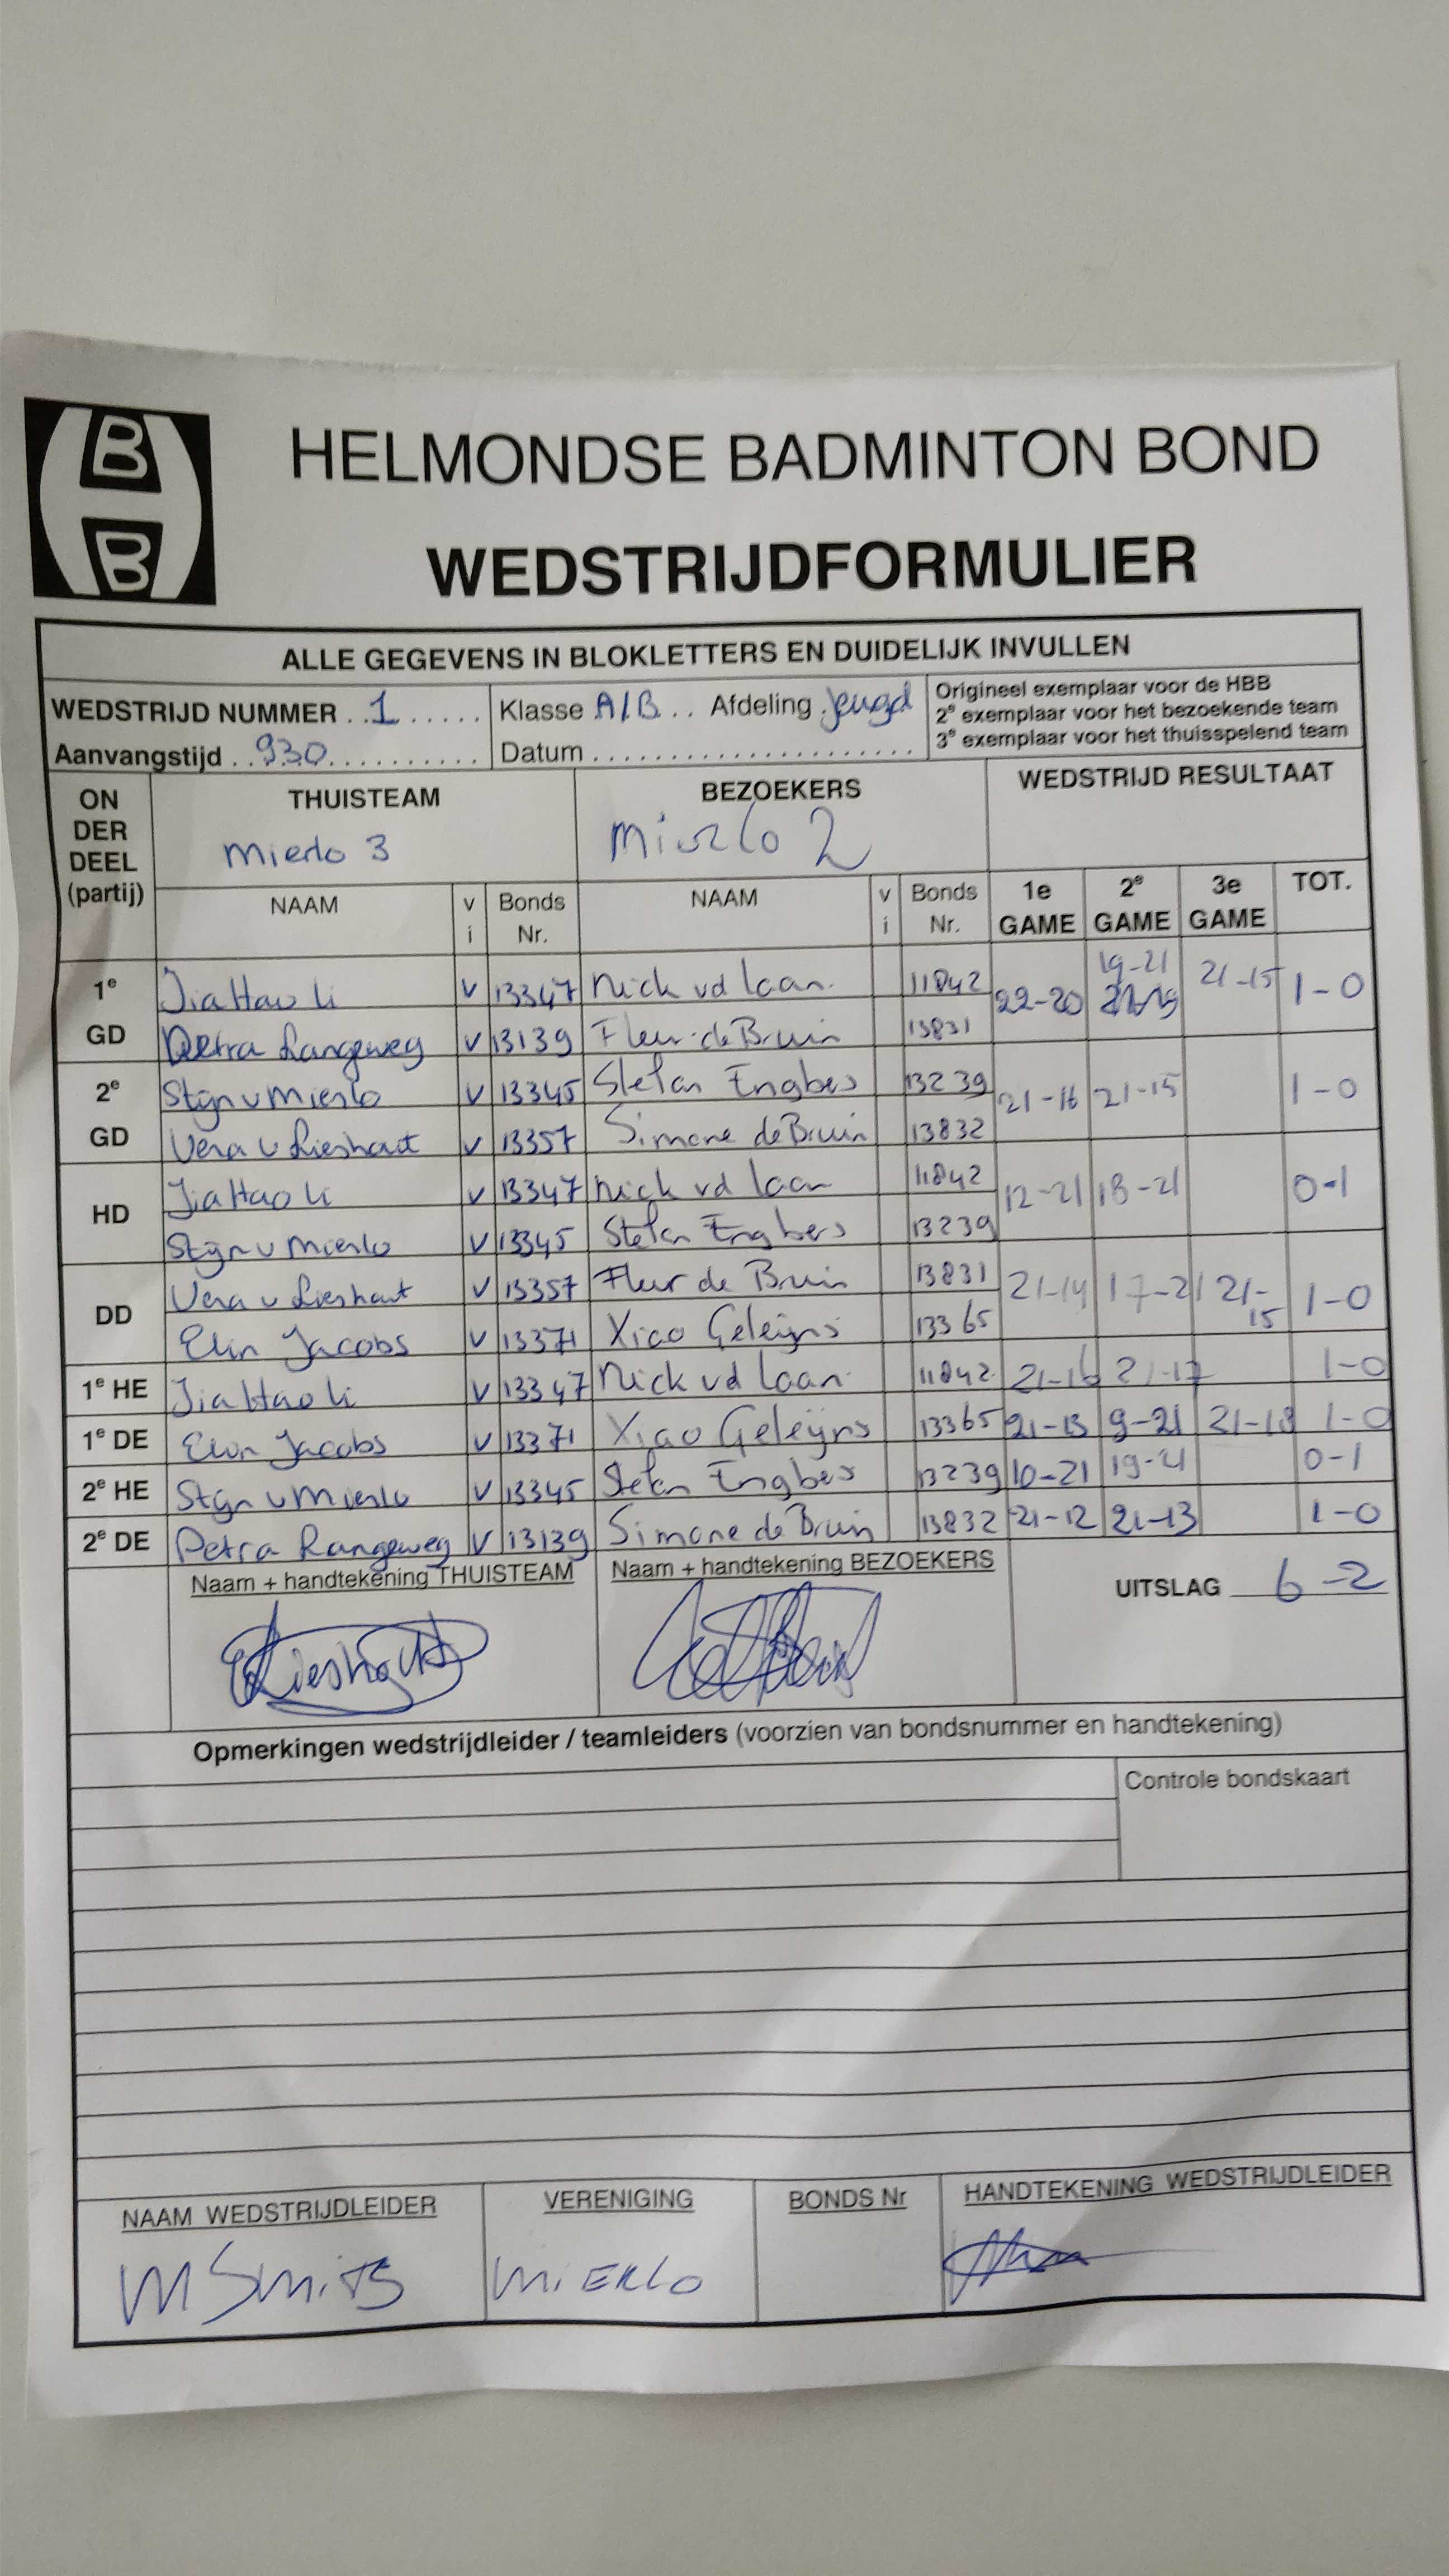 HELMONDSE BADMINTON BOND
WEDSTRIJDFORMULIER
ALLE GEGEVENS IN BLOKLETTERS EN DUIDELIJK INVULLEN
WEDSTRIJD NUMMER ..1...... Klasse A/B.. Afdeling .Jeugd
Origineel exemplaar voor de HBB
2e exemplaar voor het bezoekende team
3e exemplaar voor het thuisspelend team
Aanvangstijd ..930.......... Datum ....................
ON DER DEEL (partij) THUISTEAM BEZOEKERS WEDSTRIJD RESULTAAT
Mierlo 3 Mierlo 2
NAAM v i Bonds Nr. NAAM v i Bonds Nr. 1e GAME 2e GAME 3e GAME TOT.
1e GD JiaHao li v 13347 Nick vd laan 11842 22-20 19-21 21-15 1-0
Petra Langeweg v 13139 Fleur de Bruin 13831
2e GD Stijn v Mierlo v 13345 Stefan Engbers 13239 21-16 21-15 1-0
Vera v Lieshout v 13357 Simone de Bruin 13832
HD JiaHao li v 13347 Nick vd laan 11842 12-21 18-21 0-1
Stijn v Mierlo v 13345 Stefan Engbers 13239
DD Vera v Lieshout v 13357 Fleur de Bruin 13831 21-14 17-21 21-15 1-0
Elin Jacobs v 13371 Xiao Geleijns 13365
1e HE JiaHao li v 13347 Nick vd laan 11842 21-16 21-17 1-0
1e DE Elin Jacobs v 13371 Xiao Geleijns 13365 21-13 9-21 21-18 1-0
2e HE Stijn v Mierlo v 13345 Stefan Engbers 13239 10-21 19-21 0-1
2e DE Petra Langeweg v 13139 Simone de Bruin 13832 21-12 21-13 1-0
Naam + handtekening THUISTEAM Naam + handtekening BEZOEKERS UITSLAG 6-2
Opmerkingen wedstrijdleider / teamleiders (voorzien van bondsnummer en handtekening)
Controle bondskaart
NAAM WEDSTRIJDLEIDER VERENIGING BONDS Nr HANDTEKENING WEDSTRIJDLEIDER
M Smits MIERLO